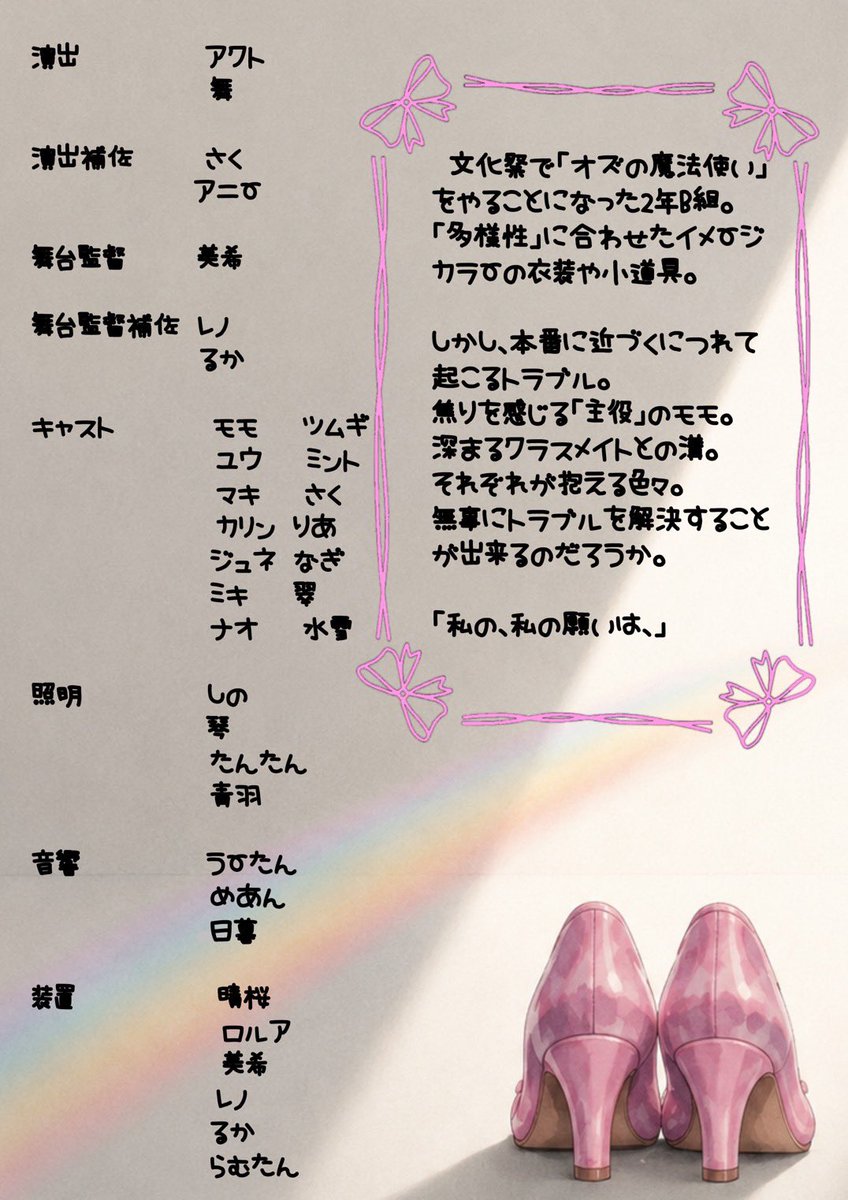 演出 アクト
舞
演出補佐 さく
アニー
舞台監督 美希
舞台監督補佐 レノ
るか
キャスト モモ ツムギ
ユウ ミント
マキ さく
カリン りあ
ジュネ なぎ
ミキ 翠
ナオ 水雪
照明 しの
琴
たんたん
青羽
音響 うーたん
めあん
日暮
装置 晴桜
ロルア
美希
レノ
るか
らむたん
文化祭で「オズの魔法使い」
をやることになった2年B組。
「多様性」に合わせたイメージ
カラーの衣装や小道具。
しかし、本番に近づくにつれて
起こるトラブル。
焦りを感じる「主役」のモモ。
深まるクラスメイトとの溝。
それぞれが抱える色々。
無事にトラブルを解決すること
が出来るのだろうか。
「私の、私の願いは、」